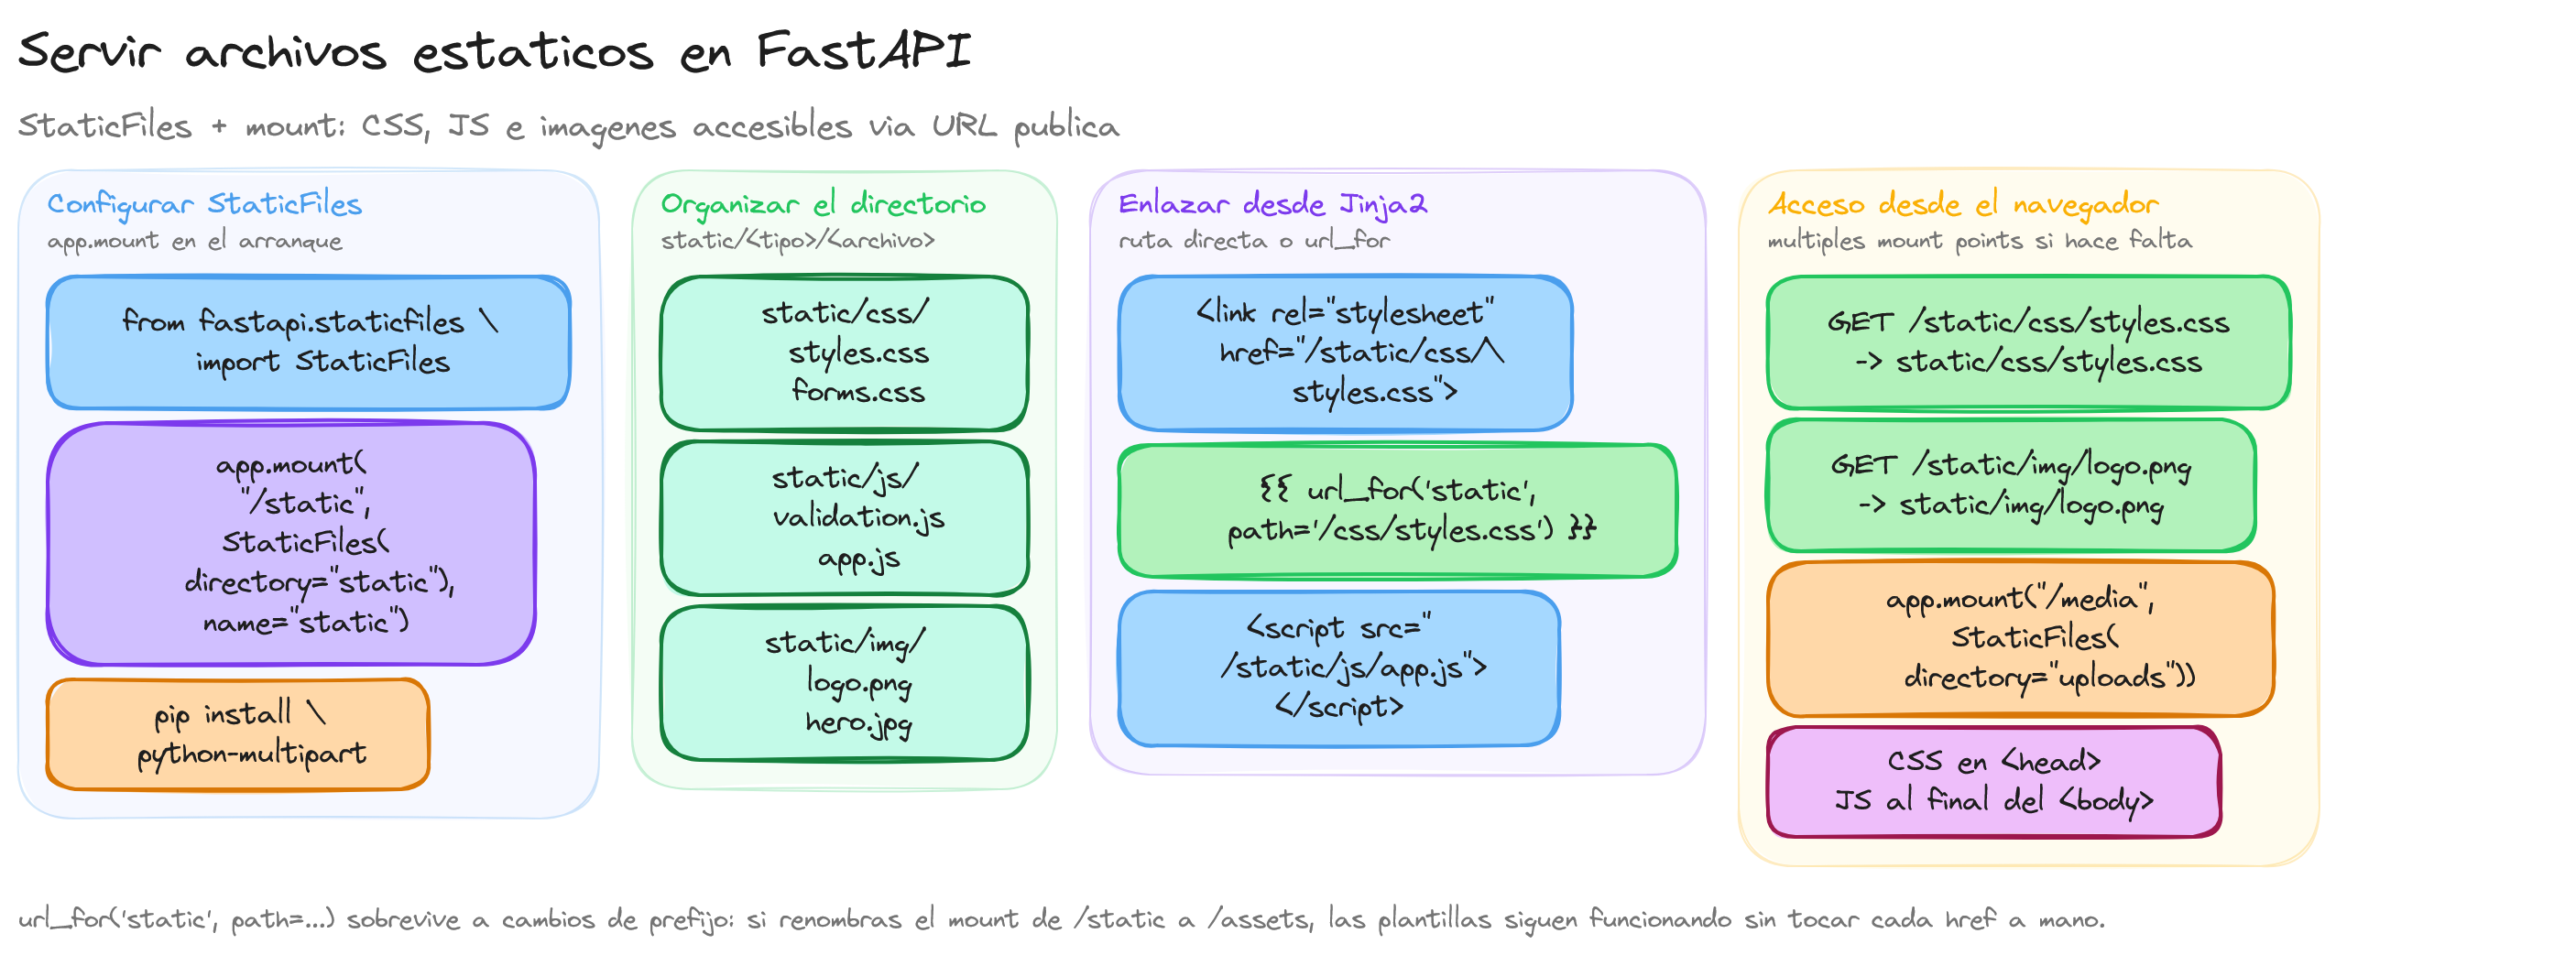 Servir archivos estaticos en FastAPI
StaticFiles + mount: CSS, JS e imagenes accesibles via URL publica
Configurar StaticFiles
app.mount en el arranque
from fastapi.staticfiles \
import StaticFiles
app.mount(
"/static",
StaticFiles(
directory="static"),
name="static")
pip install \
python-multipart
Organizar el directorio
static/<tipo>/<archivo>
static/css/
styles.css
forms.css
static/js/
validation.js
app.js
static/img/
logo.png
hero.jpg
Enlazar desde Jinja2
ruta directa o url_for
<link rel="stylesheet"
href="/static/css/\
styles.css">
{{ url_for('static',
path='/css/styles.css') }}
<script src="
/static/js/app.js">
</script>
Acceso desde el navegador
multiples mount points si hace falta
GET /static/css/styles.css
-> static/css/styles.css
GET /static/img/logo.png
-> static/img/logo.png
app.mount("/media",
StaticFiles(
directory="uploads"))
CSS en <head>
JS al final del <body>
url_for('static', path=...) sobrevive a cambios de prefijo: si renombras el mount de /static a /assets, las plantillas siguen funcionando sin tocar cada href a mano.